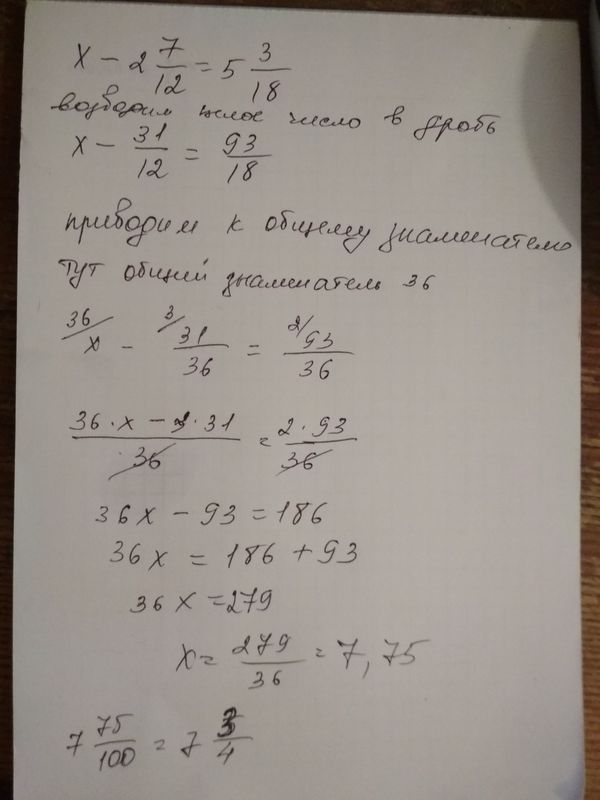 x - 2 7/12 = 5 3/18
возводим целое число в дробь
x - 31/12 = 93/18
приводим к общему знаменателю
тут общий знаменатель 36
36/ x - 3/ 31/36 = 2/ 93/36
36·x - 3·31/36 = 2·93/36
36x - 93 = 186
36x = 186 + 93
36x = 279
x = 279/36 = 7,75
7 75/100 = 7 3/4